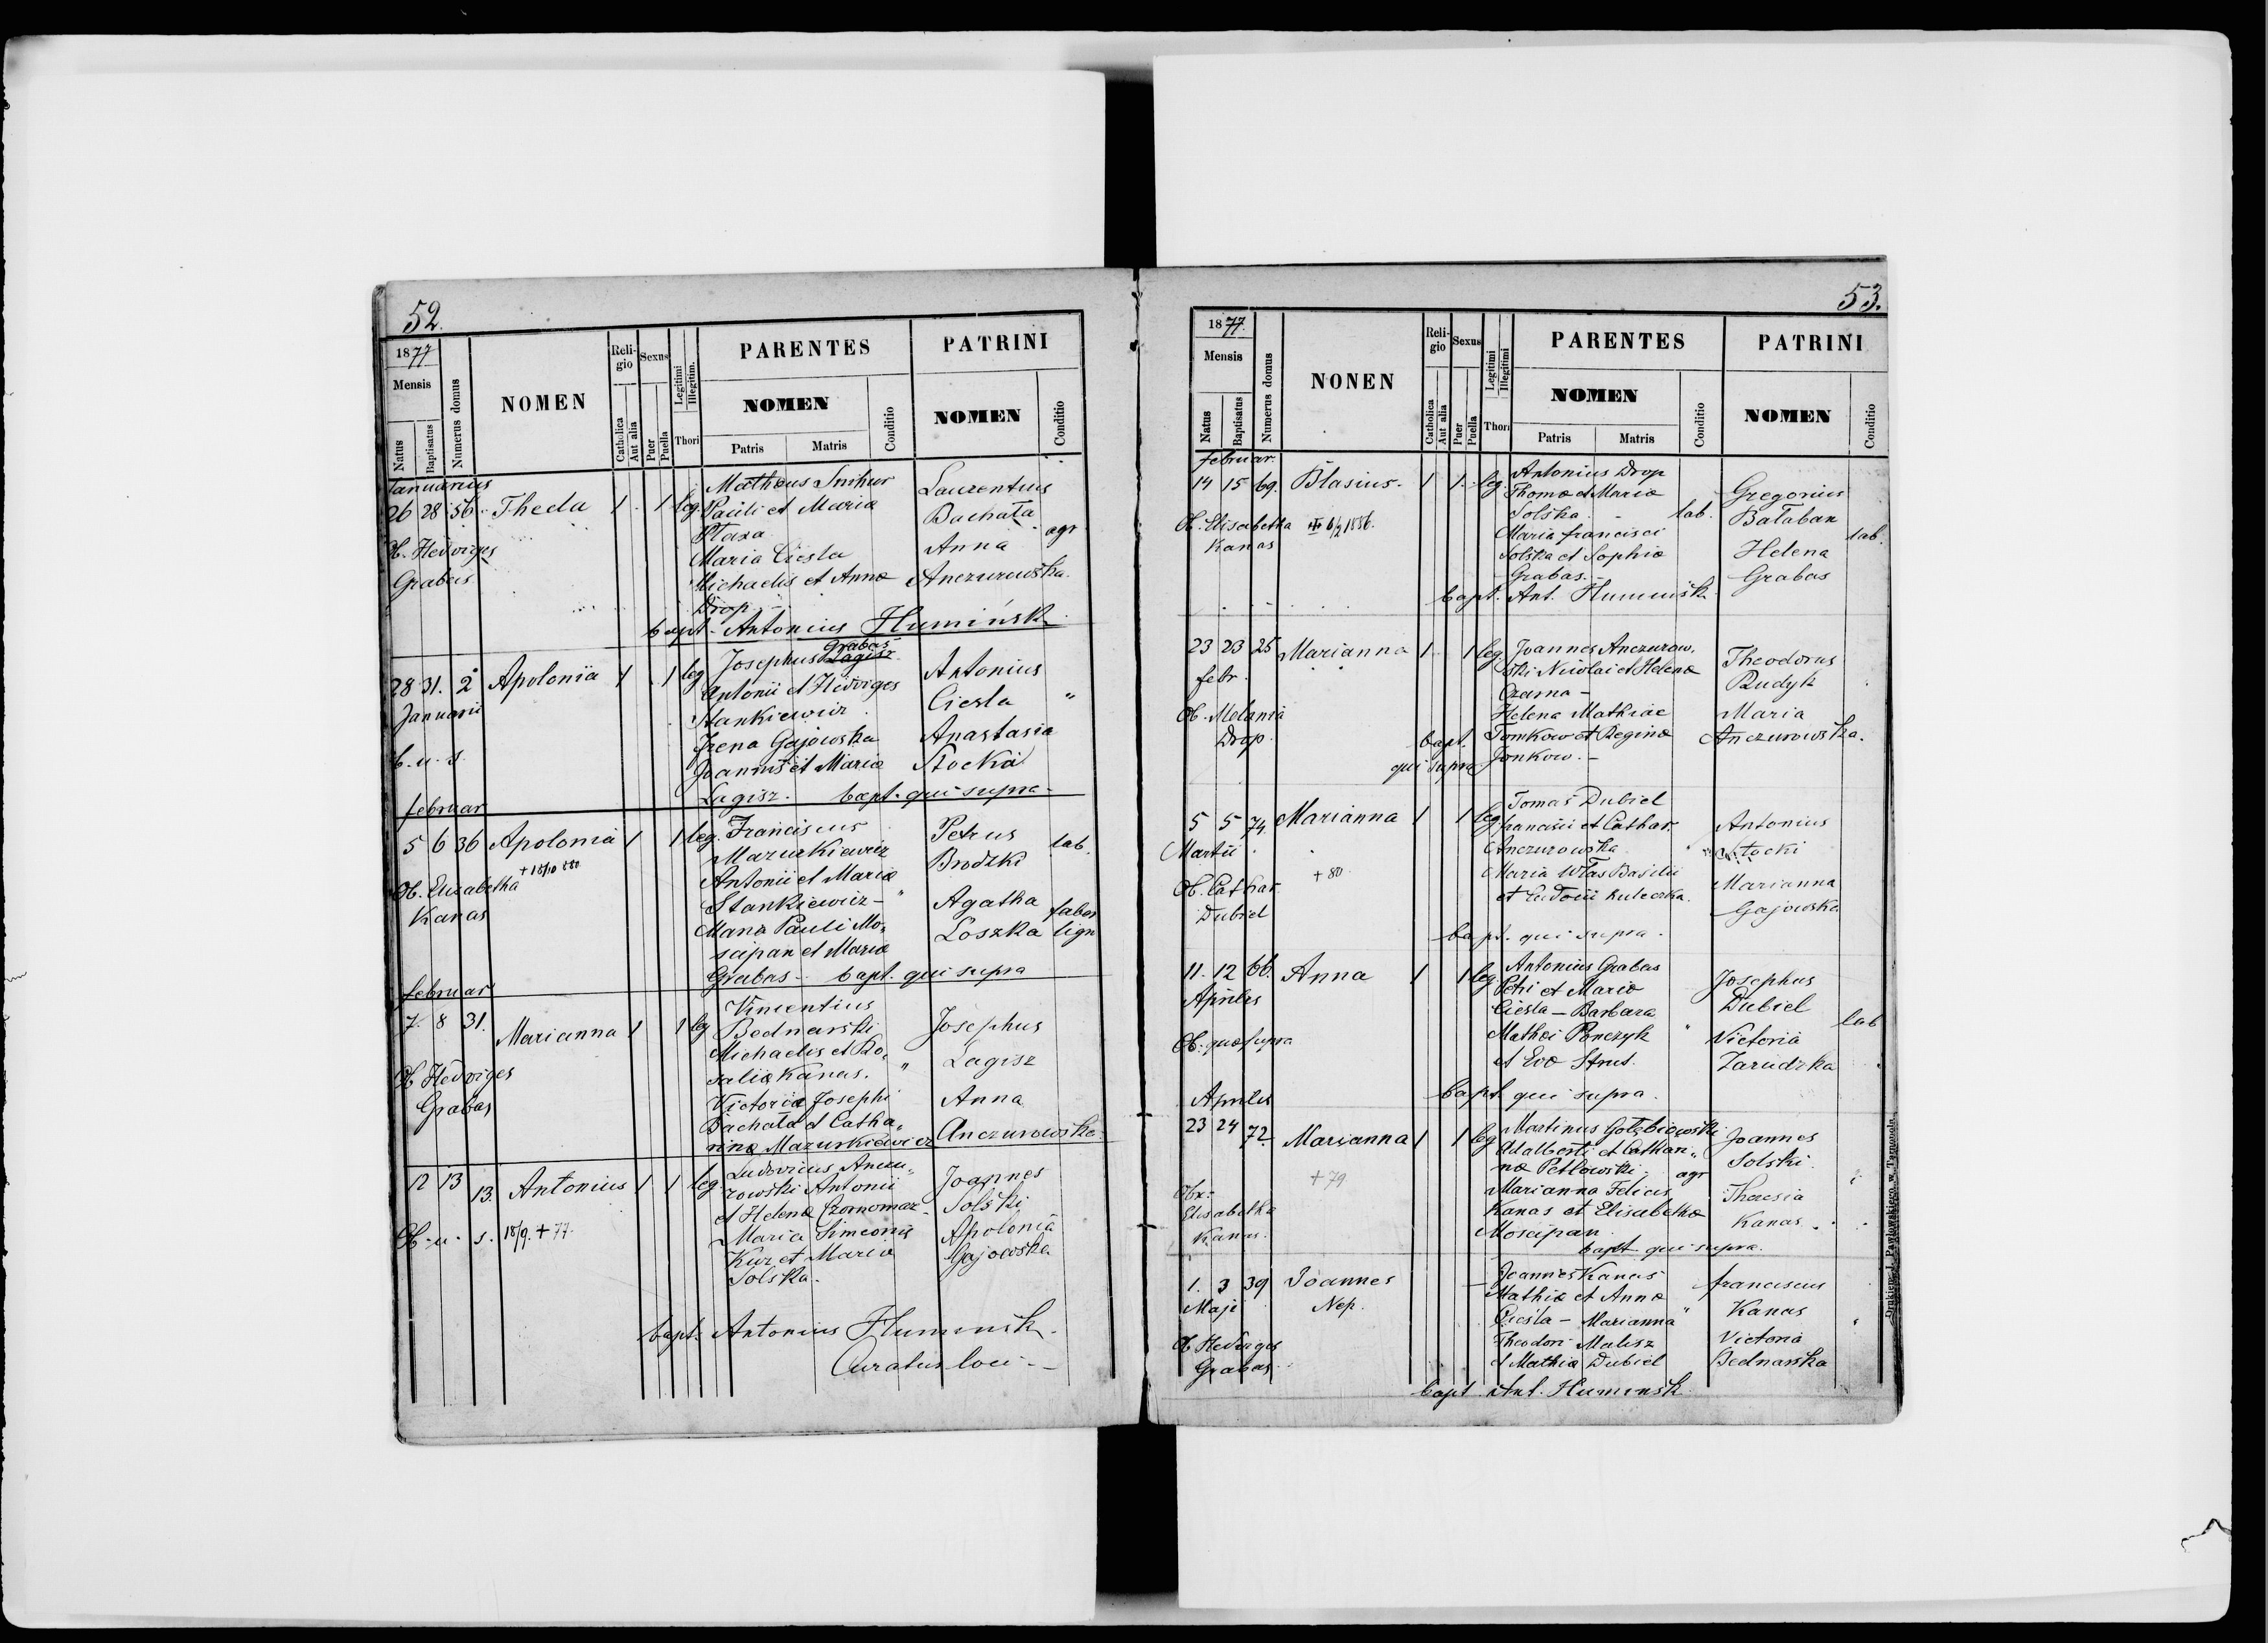 52.
1877
Mensis
Natus
Baptisatus
Numerus domus
NOMEN
Reli-
gio
Catholica
Aut alia
Sexus
Puer
Puella
Legitimi
Illegitim.
Thori
PARENTES
NOMEN
Patris
Matris
Conditio
PATRINI
NOMEN
Conditio
Januarius
26 28 56 Thecla 1 1 leg.
Ob. Hedviges
Grabas
Matheus Snihur
Pauli et Maria
Maria Ciesla
Michaelis et Anna
Drop
Laurentius
Bachata
agr
Anna
Anczurowska.
bapt. Antonius Humińsk
28 31. 2 Apolonia 1 1 leg
Januarii
b. u. s.
Grabas
Josephus Lagisz
Antonii et Hedviges
Stankiewicz
Irena Gajowska
Joannis et Maria
Lagisz.
Antonius
Ciesla "
Anastasia
Stocka
bapt. qui supra
februar
5 6 36 Apolonia 1 1 leg.
Ob. Elisabetha
Kanas
Franciscus
Mazurkiewicz
Antonii et Maria
Stankiewicz - "
Maria Pauli Mo-
scipan et Maria
Grabas -
Petrus
Brodzki
lab.
Agatha
Loszka
faber
lign
bapt. qui supra
februar
7. 8 31. Marianna 1 1 leg
Ob Hedviges
Grabas
Vincentius
Bednarski
Michaelis et Ro-
salia Kanas. "
Victoria Josephi
Bachata et Catha-
rina Mazurkiewicz
Josephus
Lagisz
Anna
Anczurowska
12 13 13. Antonius 1 1 leg
Ob. u. s. 18/9. + 77
Ludovicus Anczu-
rowski Antonii
et Helena Czornomaz
Maria Simeonis
Kuz et Maria
Solska.
Joannes
Solski
Apolonia
Gajowska
bapt. Antonius Huminsk
Curatus loci -
53.
1877.
Mensis
Natus
Baptisatus
Numerus domus
NONEN
Reli-
gio
Catholica
Aut alia
Sexus
Puer
Puella
Legitimi
Illegitimi
Thori
PARENTES
NOMEN
Patris
Matris
Conditio
PATRINI
NOMEN
Conditio
februar.
14 15 69. Blasius. 1 1. leg.
Ob. Elisabetha
Kanas
Antonius Drop
Thoma et Maria
Solska. lab.
Maria francisci
Solska et Sophia
Grabas. -
Gregorius
Bałaban
lab.
Helena
Grabas
bapt. Ant. Huminsk
23 23 25 Marianna 1 1 leg
febr.
Ob. Melania
Drop
Joannes Anczurow-
ski Nicolai et Helena
Czarna -
Helena Mathiae
Tomkow et Regina
Jonkow. -
Theodorus
Rudyk
Maria
Anczurowska.
bapt.
qui supra
5 5 74. Marianna 1 1 leg.
Martii
+ 80
Ob. Cathar.
Dubiel
Tomas Dubiel
francisci et Cathar.
Anczurowska
Maria Włas Basilii
et Eudocii
Antonius
Stocki
Marianna
Gajowska
bapt. qui supra.
11. 12 66. Anna 1 1 leg
Aprilis
Ob. quae supra
Antonius Grabas
Petri et Maria
Ciesla - Barbara
Mathei Ponczyk "
et Eva Strus.
Josephus
Dubiel
lab
Victoria
Zarudzka
bapt. qui supra.
Aprilis
23 24 72. Marianna 1 1 leg
+ 79
Obx.
Elisabetha
Kanas.
Martinus Gołębiowski
Adalberti et Cathari-
na Petlowski. agr
Marianna Felicis
Kanas et Elisabetha
Moscipan
Joannes
Solski
Theresia
Kanas.
bapt. qui supra.
1. 3 39 Joannes
Maji Nep.
Ob Hedviges
Grabas
Joannes Kanas
Mathia et Anna
Ciesla - Marianna "
Theodori Malisz
et Mathia Dubiel
franciscus
Kanas
Victoria
Bednarska
bapt. Ant. Huminsk
Drukiem J. Pawłowskiego w Tarnopolu.